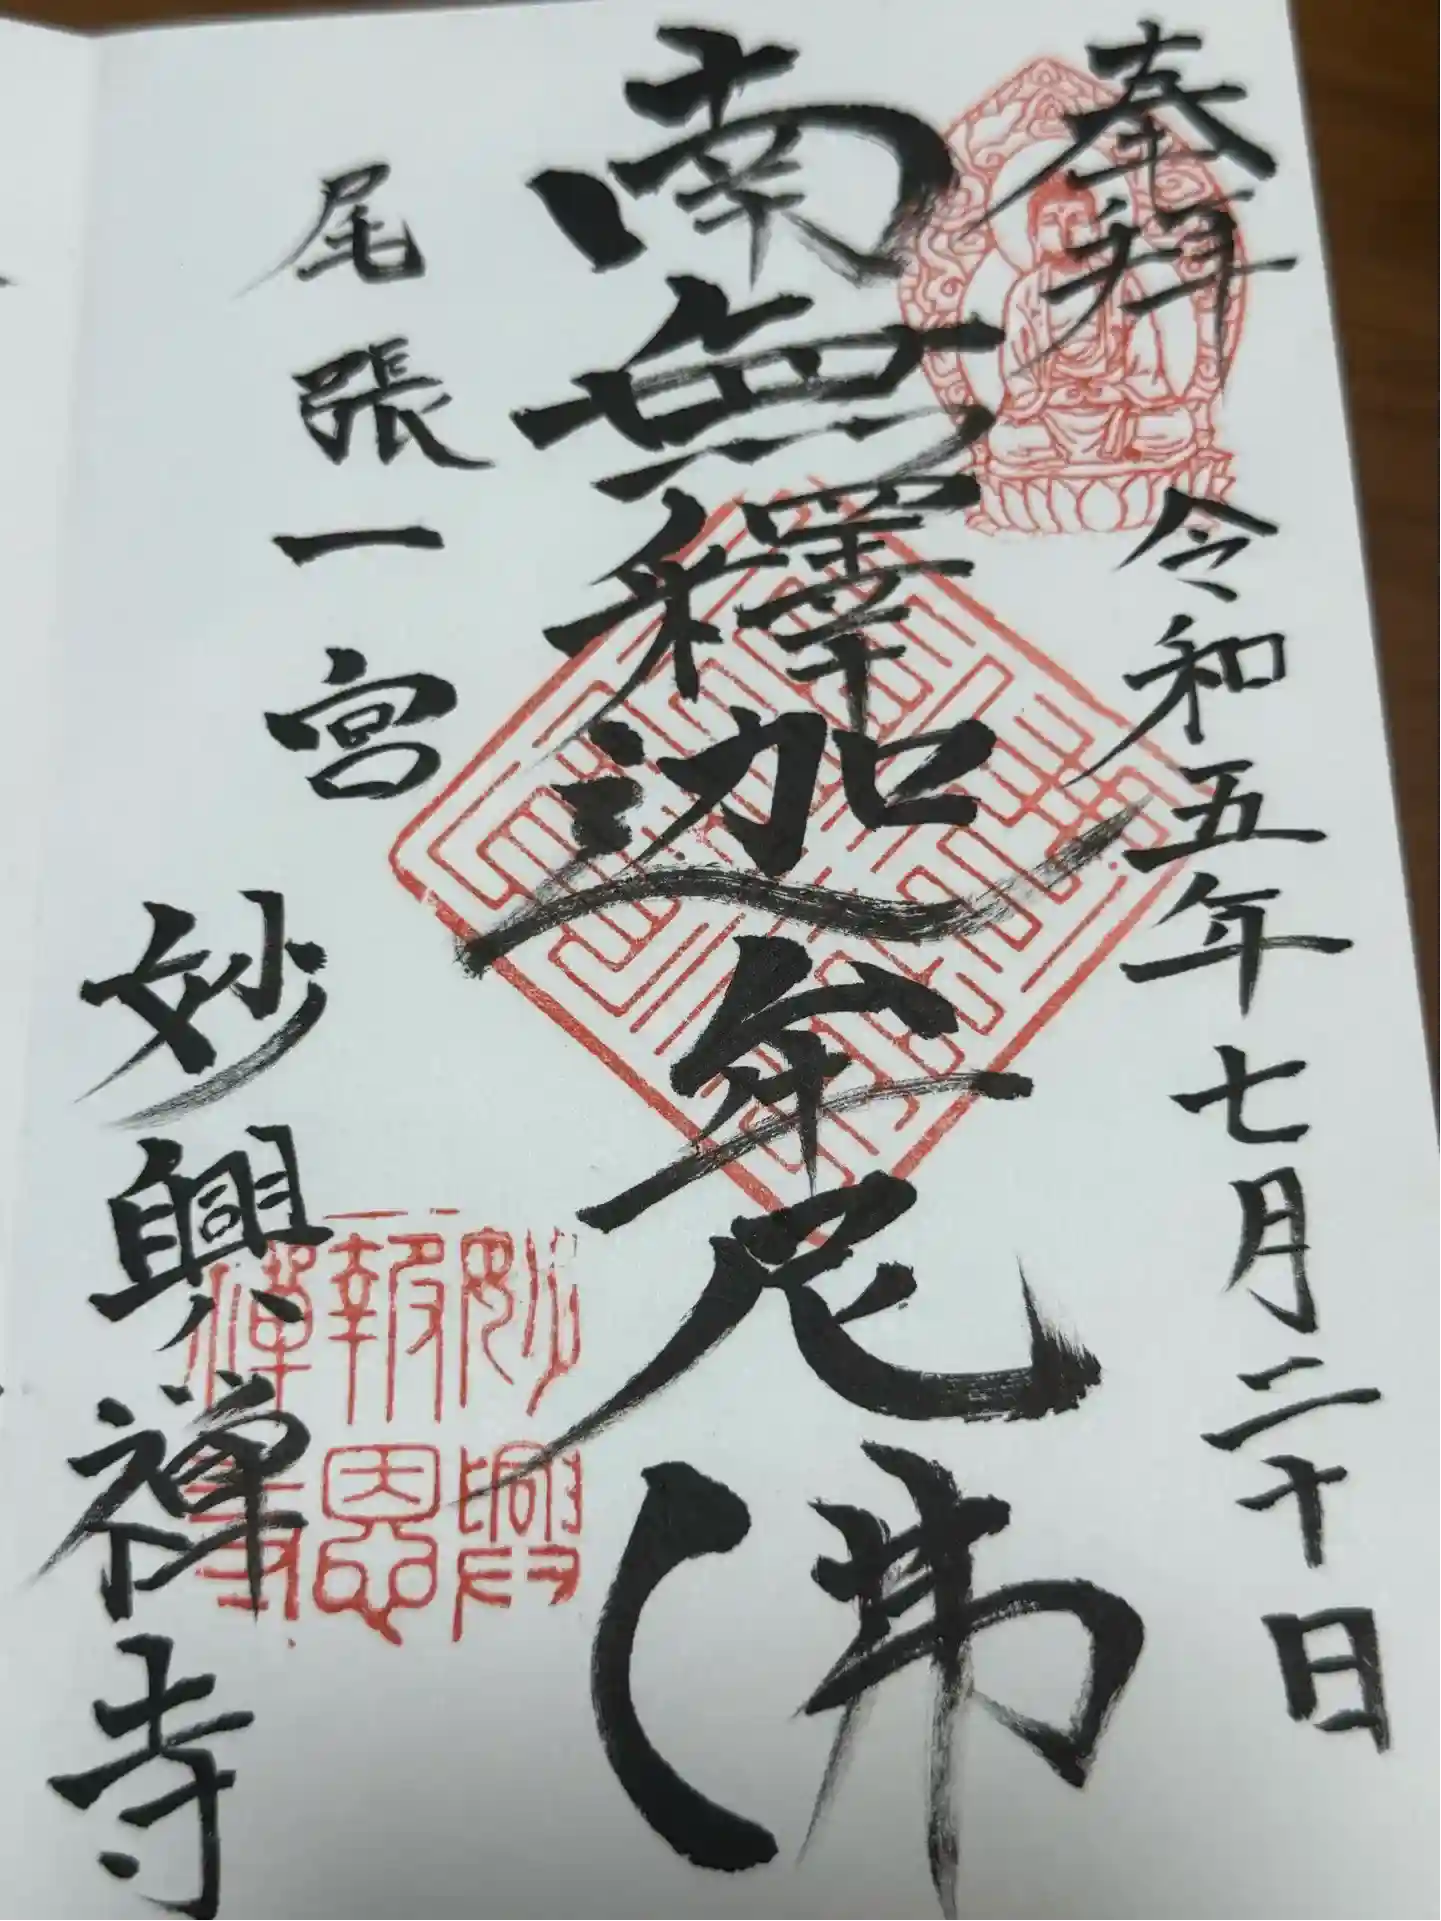 奉拝
令和五年七月二十日
南無釋迦牟尼佛
尾張一宮
妙興禅寺
妙興
報恩
禅寺